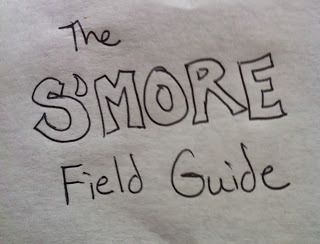 The
S'MORE
Field Guide